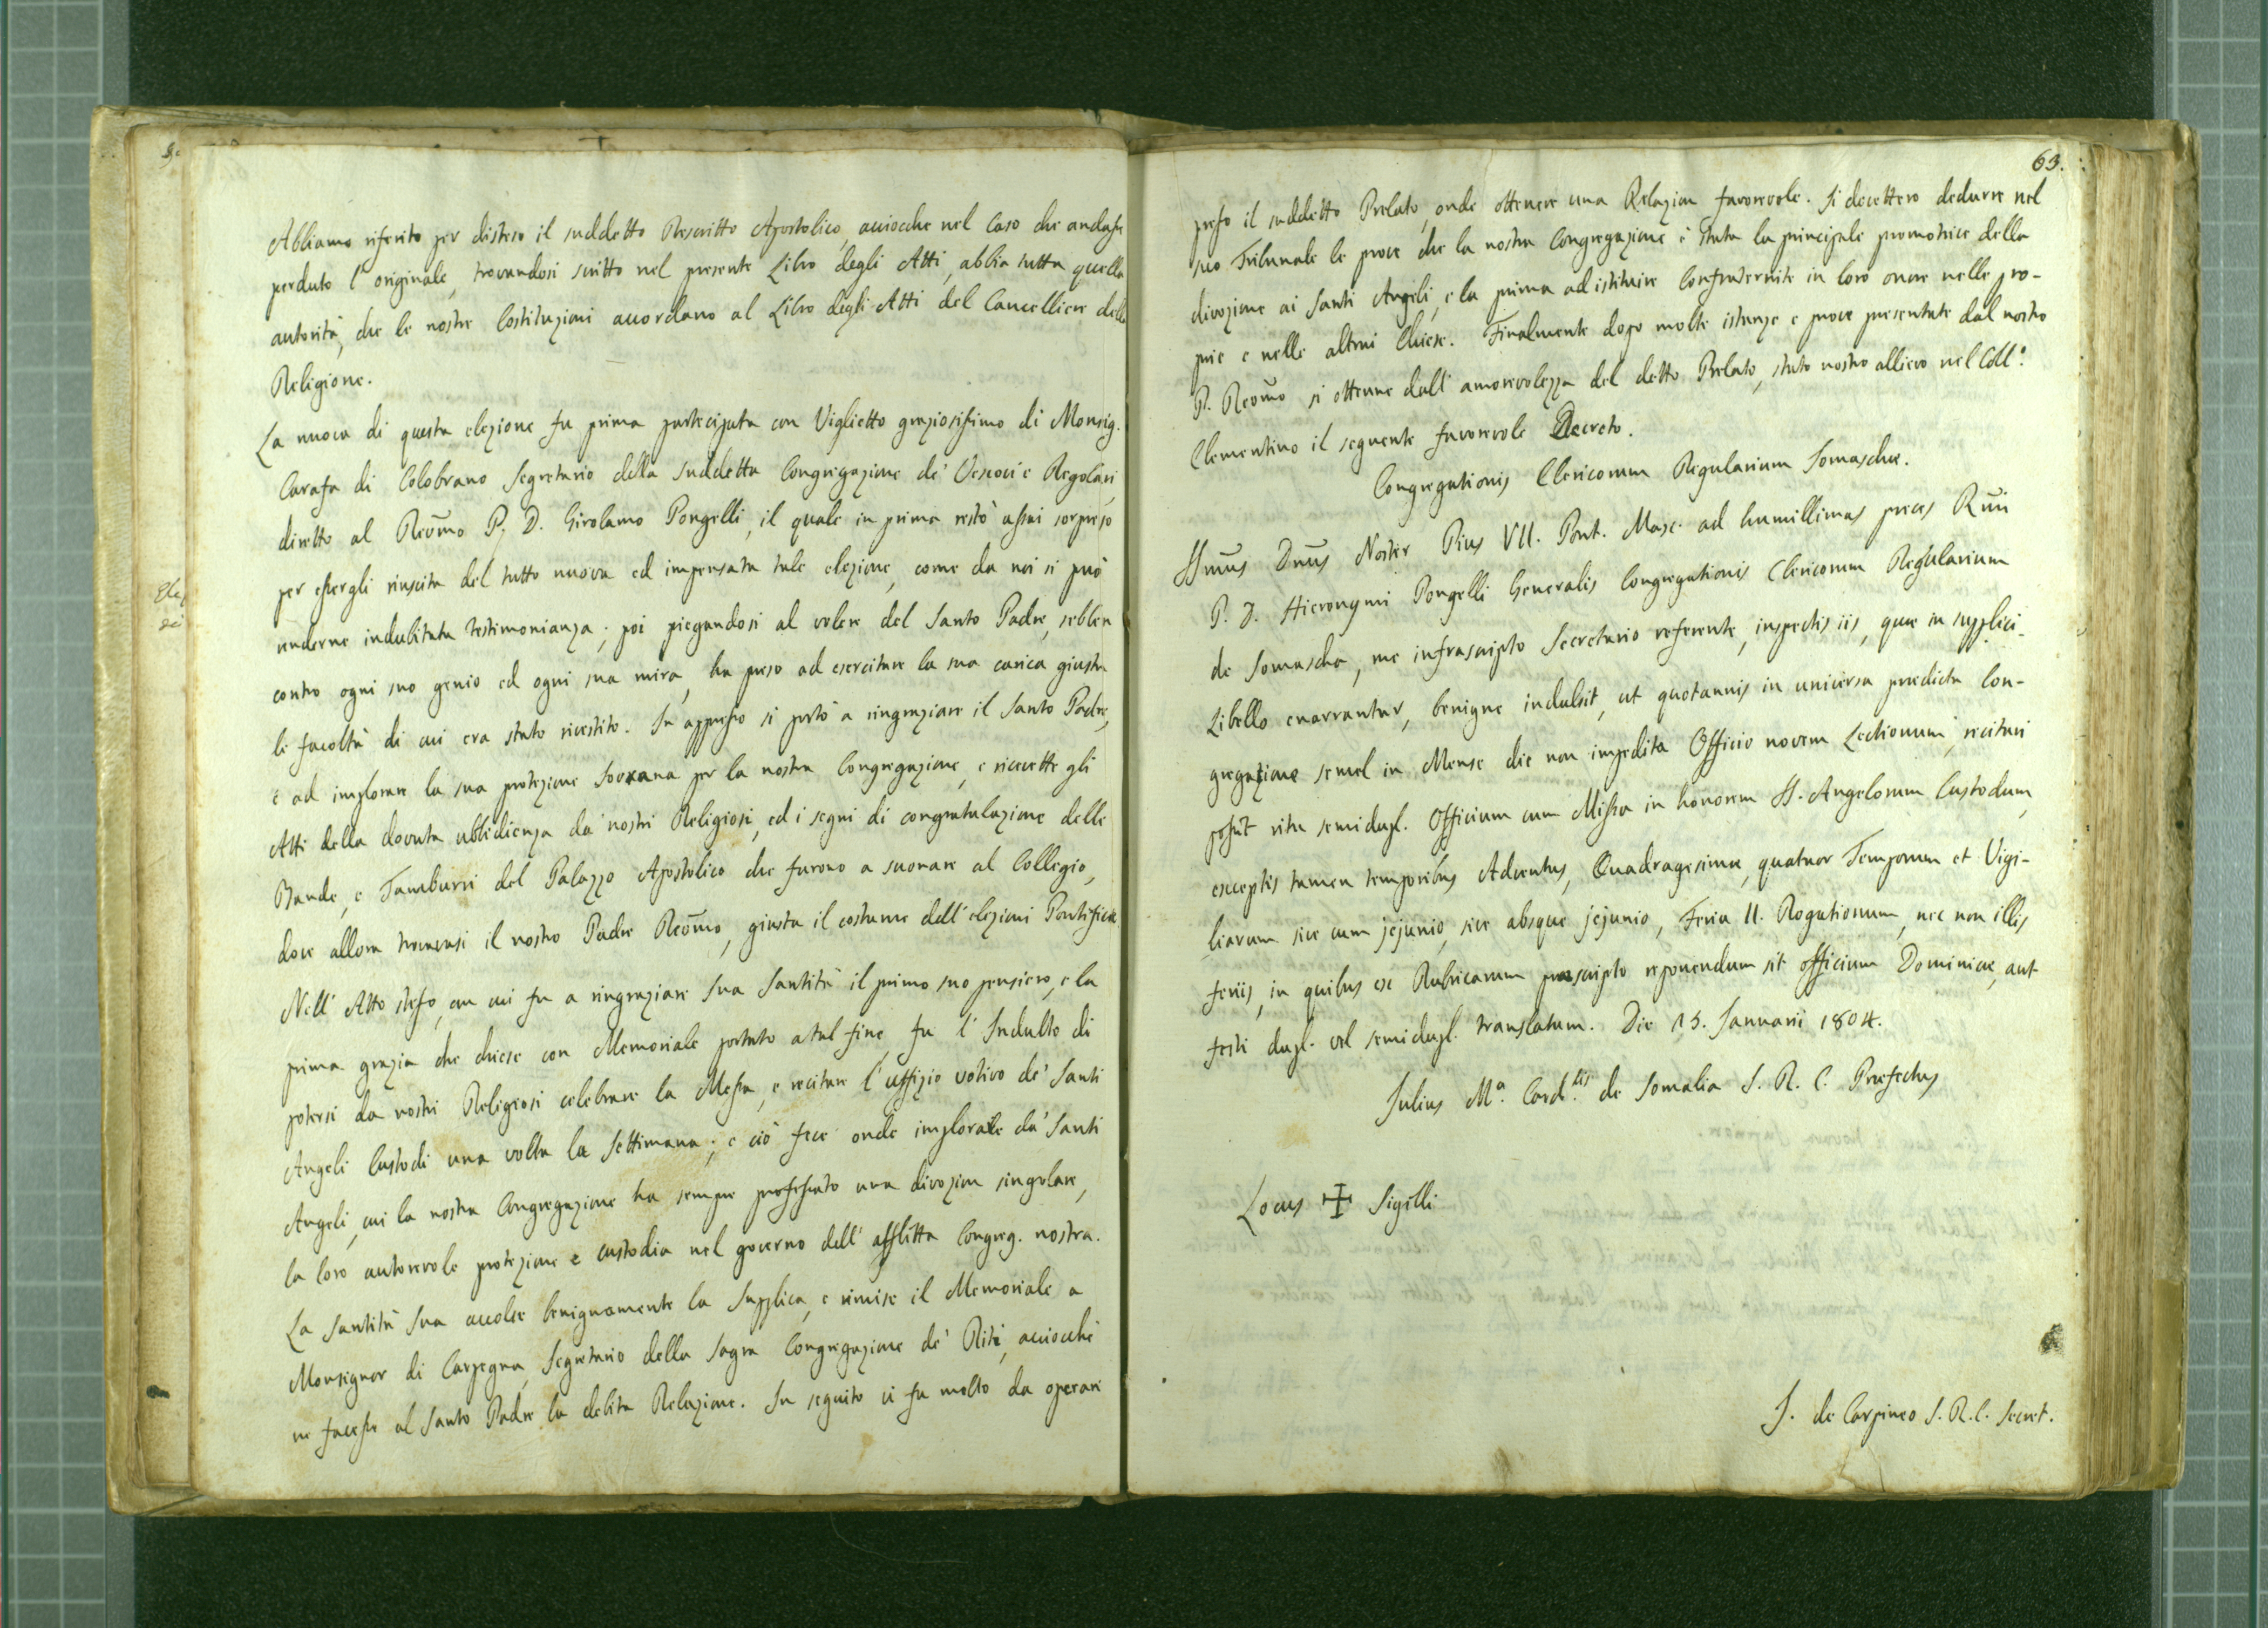 Abbiamo riferito per disteso il suddetto Rescritto Apostolico, acciocche nel Caso che andasse
perduto l'originale, trovandosi scritto nel presente Libro degli Atti, abbia tutta quella
autorità, che le nostre Costituzioni accordano al Libro degli Atti del Cancelliere della
Religione.
La nuova di questa elezione fu prima partecipata con Viglietto graziosissimo di Monsig.
Carafa di Colobrano Segretario della suddetta Congregazione de' Vescovi e Regolari,
diretto al Reōmo P. D. Girolamo Pongelli, il quale in prima restò assai sorpreso
per essergli riuscita del tutto nuova ed impensata tale elezione, come da noi si può
renderne indubitata testimonianza; poi piegandosi al volere del Santo Padre, sebben
contro ogni suo genio ed ogni sua mira, ha preso ad esercitare la sua carica giusta
le facoltà di cui era stato rivestito. In appresso si portò a ringraziare il Santo Padre,
e ad implorare la sua protezione Sovrana per la nostra Congregazione, e ricevette gli
Atti della dovuta ubbidienza da' nostri Religiosi, ed i segni di congratulazione delle
Bande, e Tamburri del Palazzo Apostolico che furono a suonare al Collegio,
dove allora trovavasi il nostro Padre Reōmo, giusta il costume dell'elezioni Pontificie
Nell'Atto stesso, cun cui fu a ringraziare Sua Santità il primo suo pensiero, e la
prima grazia che chiese con Memoriale portato a tal fine, fu l'Indulto di
potersi da nostri Religiosi celebrare la Messa, e recitare l'uffizio votivo de' Santi
Angeli Custodi una volta la Settimana; e ciò fece onde implorare da' Santi
Angeli, cui la nostra Congregazione ha sempre professato una divozion singolare,
la loro autorevole protezione e custodia nel governo dell'afflitta Congreg. nostra.
La Santità Sua accolse benignamente la Supplica, e rimise il Memoriale a
Monsignor di Carpegna, Segretario della Sagra Congregazione de' Riti, acciocchè
ne facesse al Santo Padre la debita Relazione. In seguito vi fu molto da operare
63.
presso il suddetto Prelato, onde ottenere una Relazion favorevole. Si dovettero dedurre nel
suo Tribunale le prove che la nostra Congregazione è stata la principale promotrice della
divozione ai Santi Angeli, e la prima ad istituire Confraternite in loro onore nelle pro-
prie e nelle altrui Chiese. Finalmente dopo molte istanze e prove presentate dal nostro
P. Reōmo si ottenne dall'amorevolezza del detto Prelato, stato nostro allievo nel Coll.º
Clementino il seguente favorevole Decreto.
Congregationis Clericorum Regularium Somaschae.
SSm̄us Dn̄us Noster Pius VII. Pont. Max. ad humillimas preces Rm̄i
P. D. Hieronymi Pongelli Generalis Congregationis Clericorum Regularium
de Somascha, me infrascripto Secretario referente, inspectis iis, quae in supplici
Libello enarrantur, benigne indulsit, ut quotannis in universa praedicta Con-
gregatione semel in Mense die non impedita Officio novem Lectionum, recitari
possit ritu semidupl. Officium cum Missa in honorem SS. Angelorum Custodum,
exceptis tamen temporibus Adventus, Quadragesimae, quatuor Temporum et Vigi-
liarum sive cum jejunio, sive absque jejunio, Feria II. Rogationum, nec non illis
feriis, in quibus ex Rubricarum praescripto reponendum sit officium Dominicae, aut
festi dupl. vel semidupl. translatum. Die 15. Januarii 1804.
Julius M.ª Card.lis de Somalia S. R. C. Praefectus
Locus ✠ Sigilli
J. de Carpineo S. R. C. Secret.